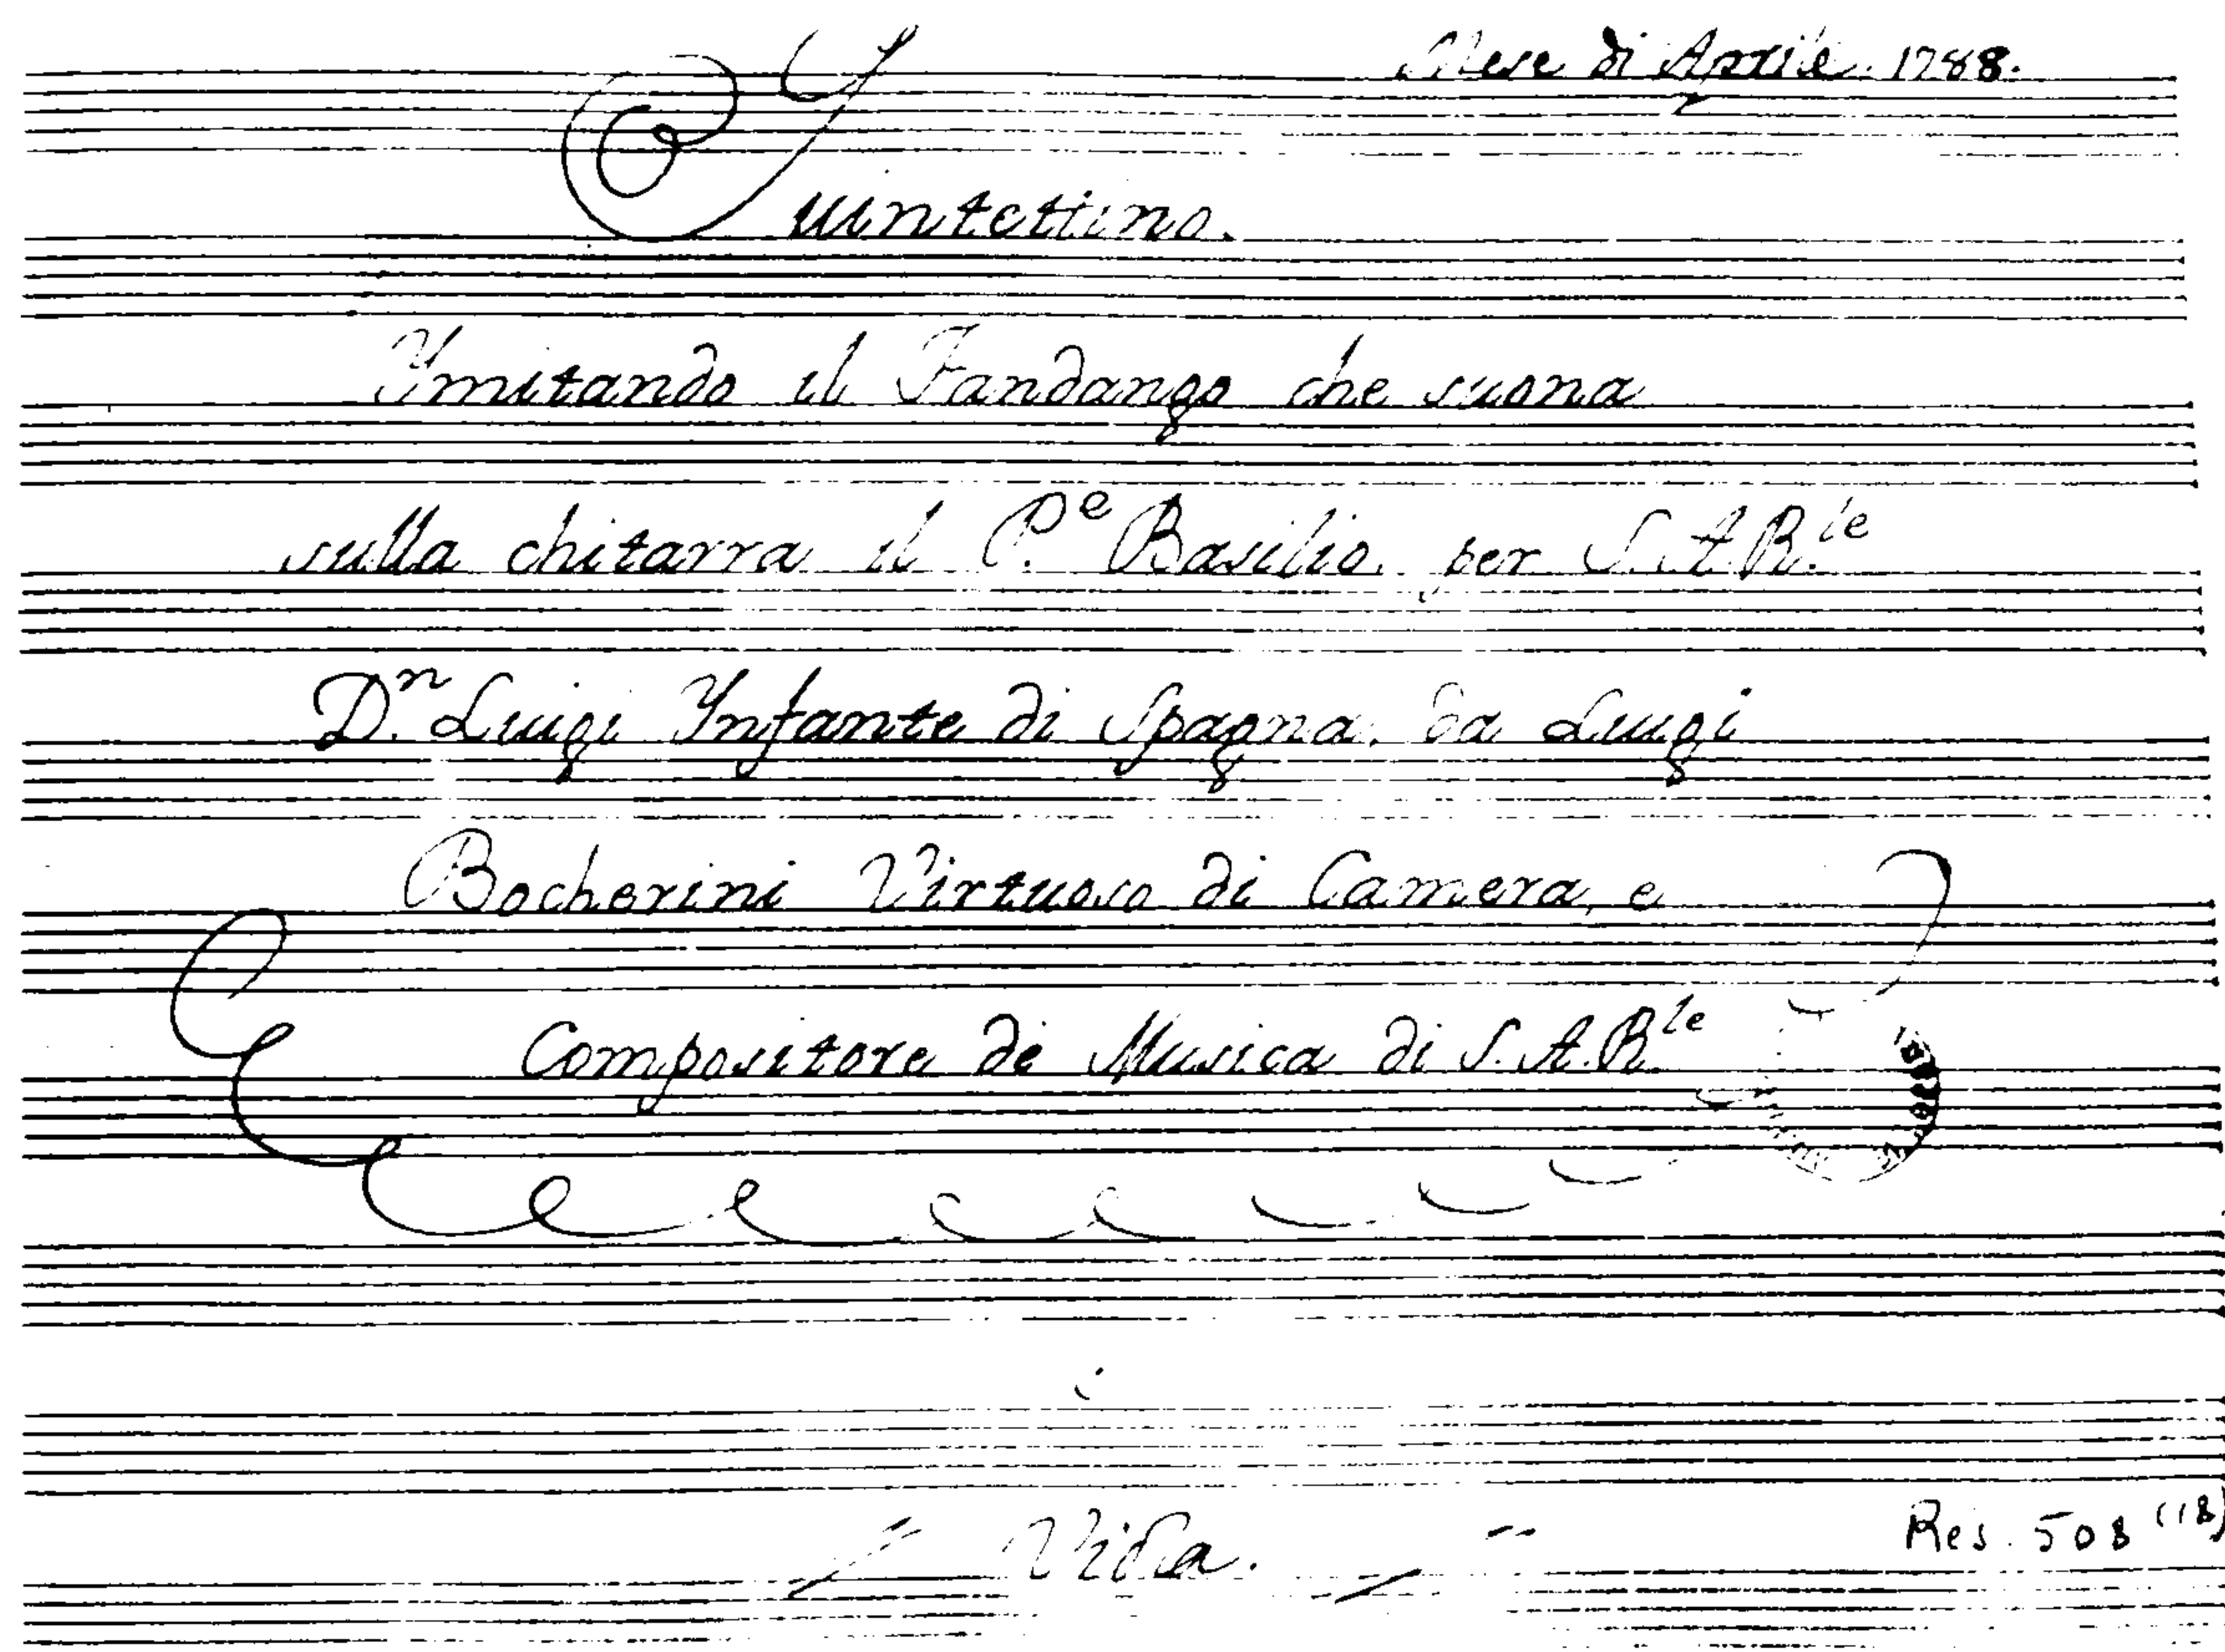 Mese di Aprile. 1788.
Quintettino.
Ymitando il Fandango che suona
sulla chitarra il P.e Basilio. per S. A. R.le
D.n Luigi Ynfante di Spagna. da Luigi
Bocherini Virtuoso di Camera, e
Compositore de Musica di S. A. R.le
Res. 508 (18)